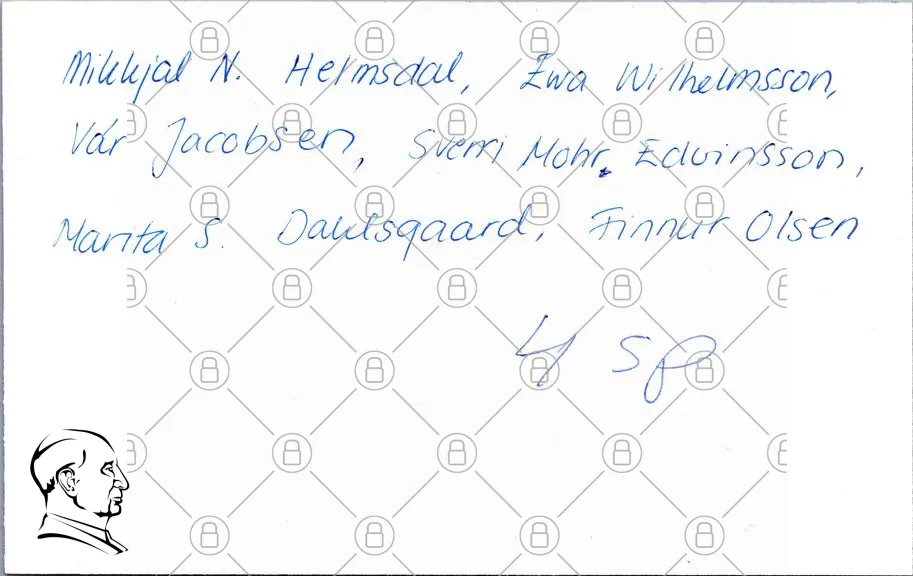 Mikkjal N. Helmsdal, Ewa Wilhelmsson,
Vár Jacobsen, Sverri Mohr, Edvinsson,
Marita S. Dahlsgaard, Finnur Olsen
4 sp